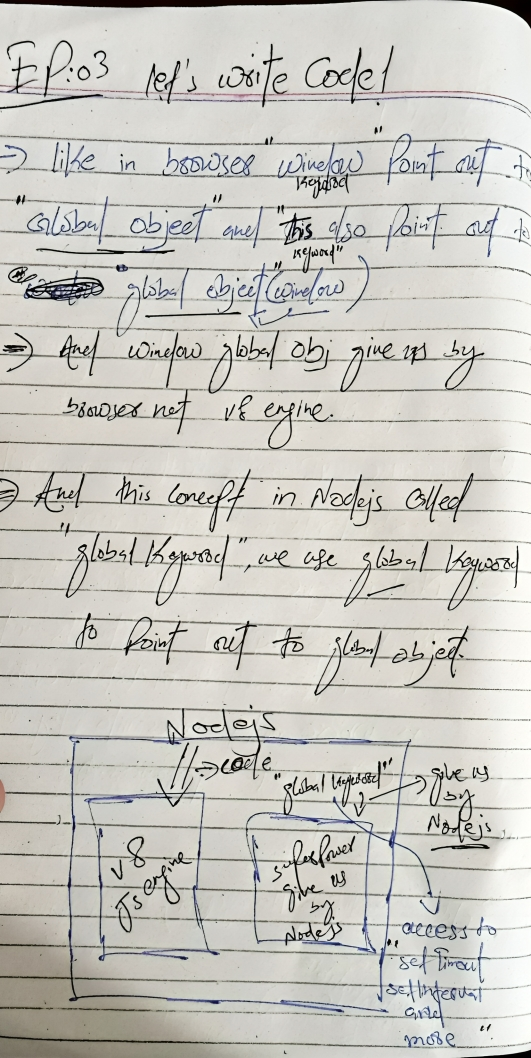 EP:03 let's write Code!
⇒ like in browser "window" Point out to
keyword
"Global object" and "this also Point out to
keyword"
"global object" (window)
⇒ And window global obj give us by
browser not v8 engine.
⇒ And this concept in Nodejs Called
"global Keyword", we use global keyword
to Point out to global object.
Nodejs
→ code
"global keyword"
→ give us
by
Nodejs
v8
Js engine
superPower
give us
by
Nodejs
access to
"setTimout
setInterval
and
more"